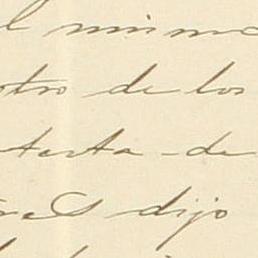 l mismo
otro de los
testa de
dijo